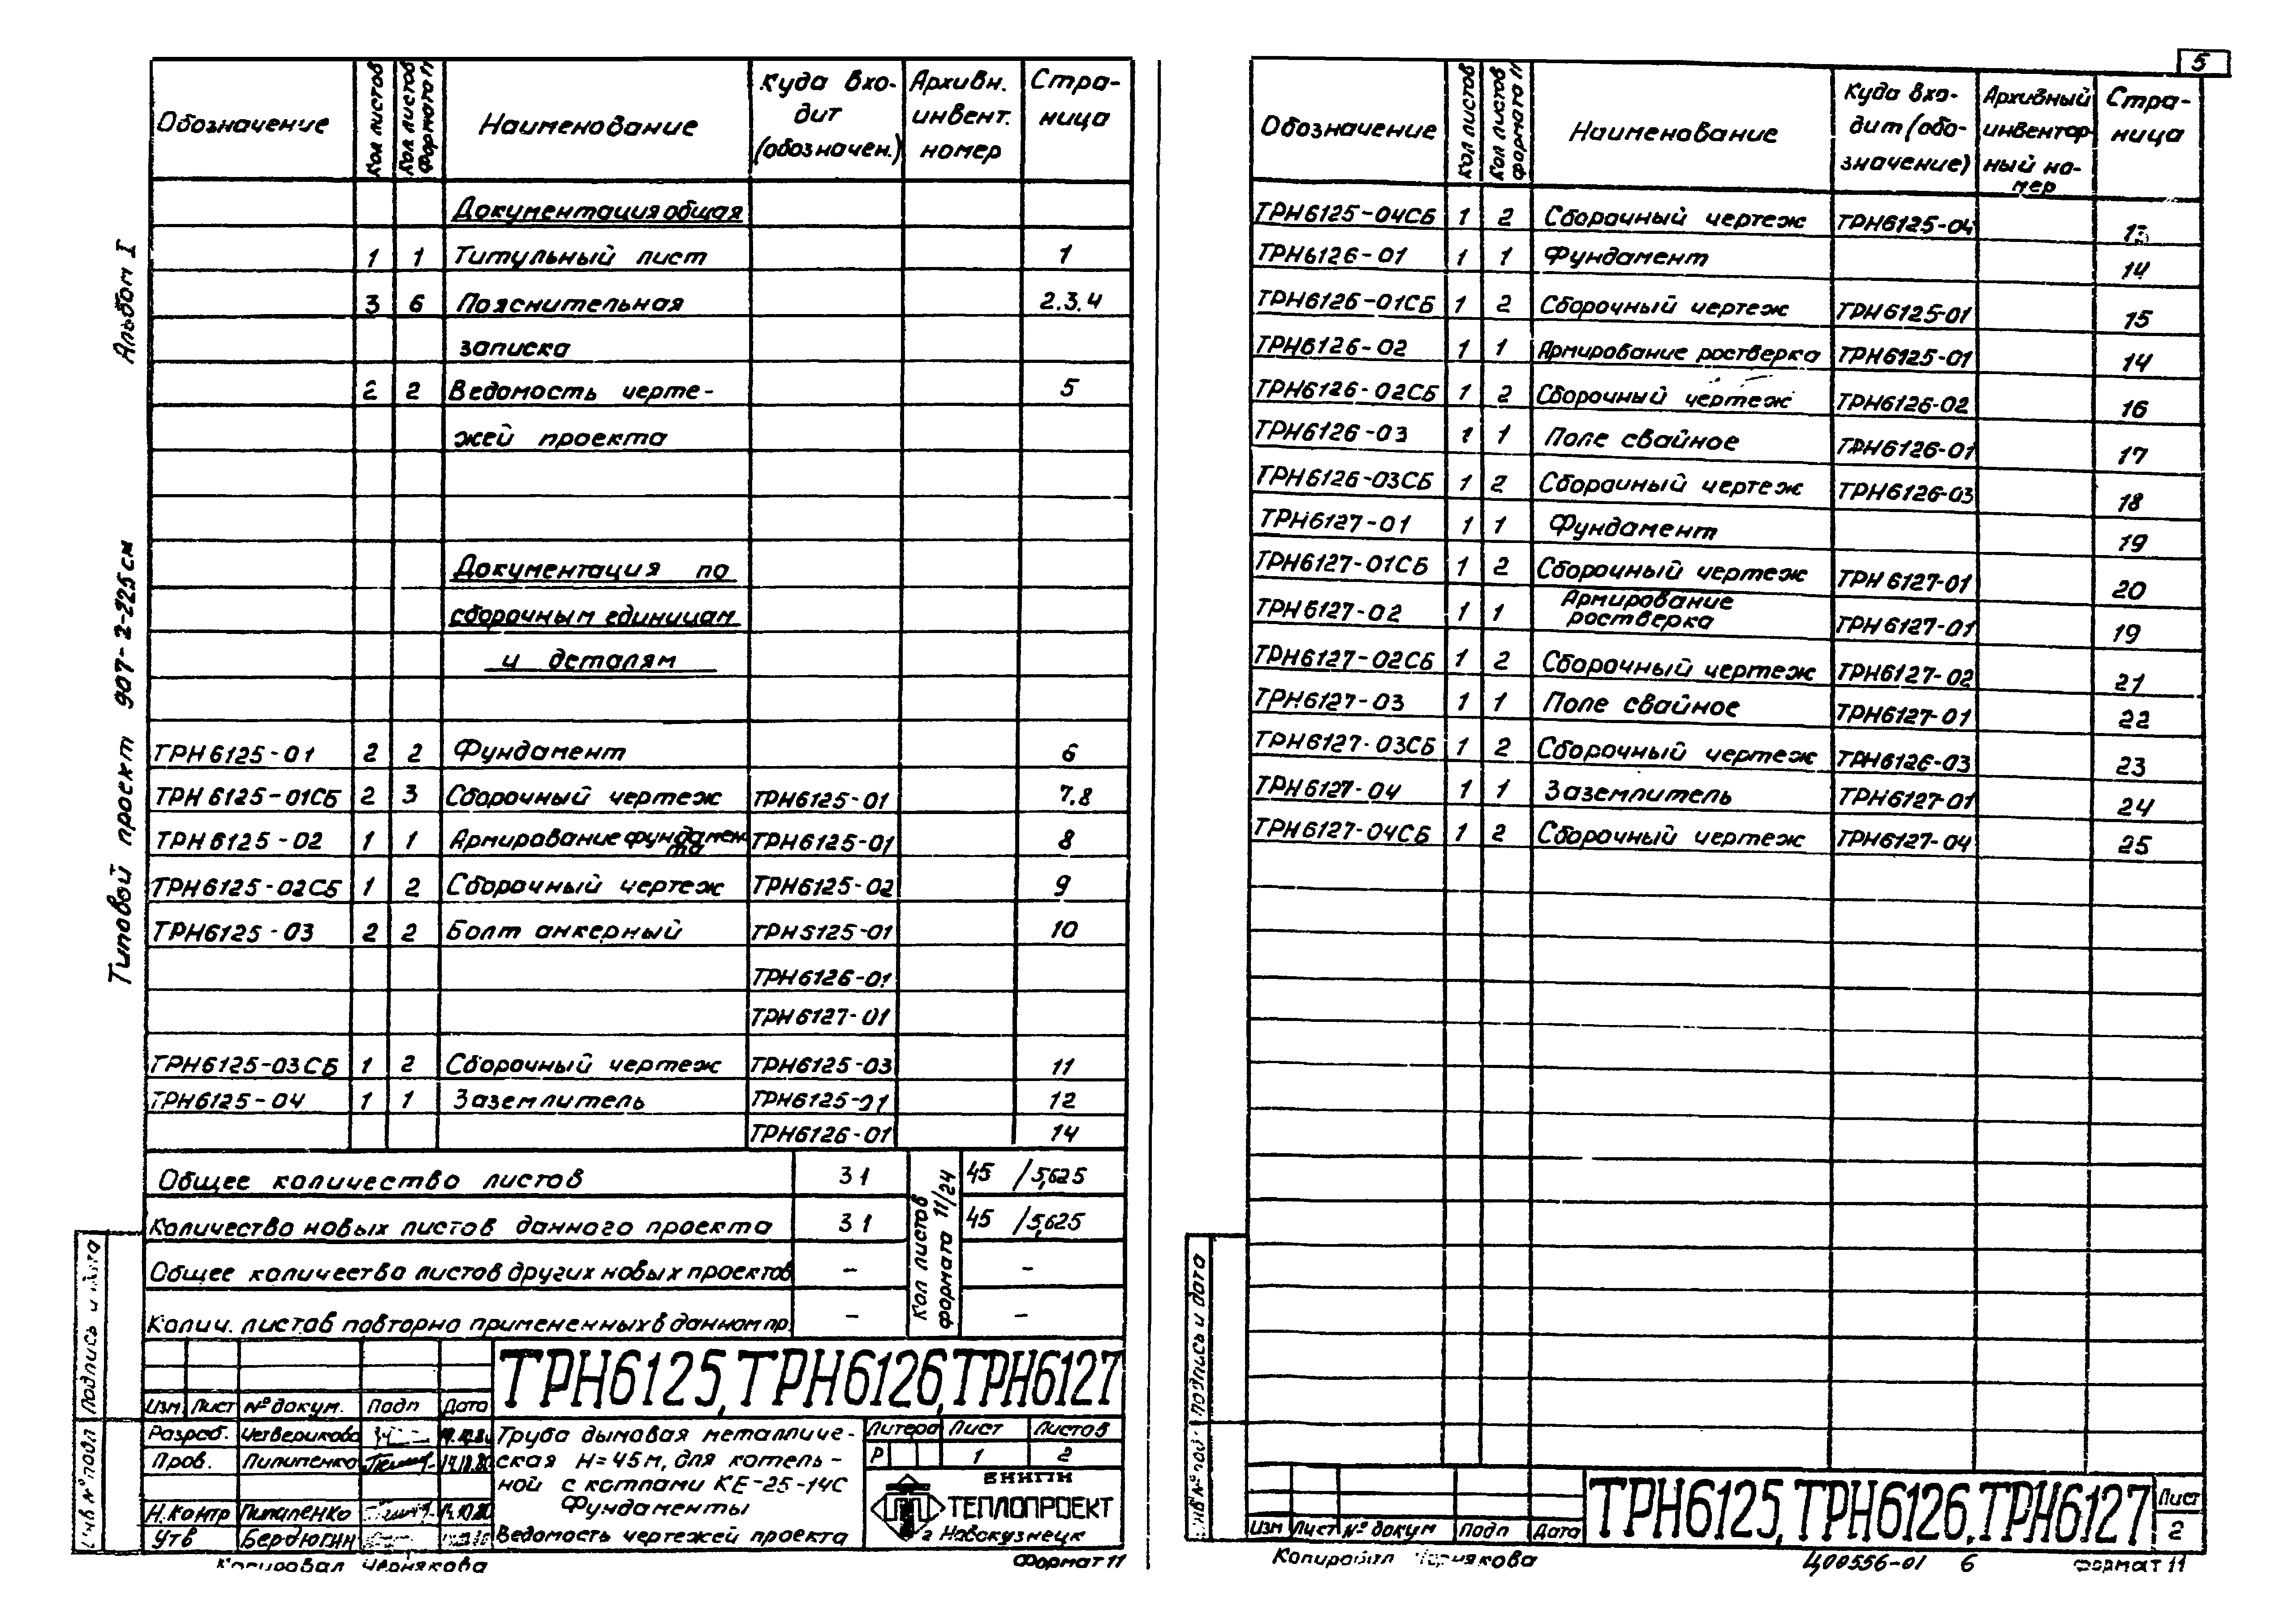 Альбом I
Типовой проект 907-2-225см
Обозначение | Кол листов | Кол листов формата 11 | Наименование | Куда входит (обозначен.) | Архивн. инвент. номер | Страница
Документация общая
1 1 Титульный лист 1
3 6 Пояснительная 2.3.4
записка
2 2 Ведомость черте- 5
жей проекта
Документация по
сборочным единицам
и деталям
ТРН6125-01 2 2 Фундамент 6
ТРН6125-01СБ 2 3 Сборочный чертеж ТРН6125-01 7,8
ТРН6125-02 1 1 Армирование фундамента ТРН6125-01 8
ТРН6125-02СБ 1 2 Сборочный чертеж ТРН6125-02 9
ТРН6125-03 2 2 Болт анкерный ТРН6125-01 10
ТРН6126-01
ТРН6127-01
ТРН6125-03СБ 1 2 Сборочный чертеж ТРН6125-03 11
ТРН6125-04 1 1 Заземлитель ТРН6125-01 12
ТРН6126-01 14
Общее количество листов 31 45 /5,625
Количество новых листов данного проекта 31 45 /5,625
Общее количество листов других новых проектов - -
Колич. листов повторно примененных в данном пр. - -
Кол листов формата 11/24
ТРН6125, ТРН6126, ТРН6127
Изм Лист № докум. Подп Дата
Разраб. Четверикова
Пров. Пилипенко
Н.контр Пилипенко
Утв Бердюгин
Труба дымовая металличе-
ская Н=45м, для котель-
ной с котлами КЕ-25-14С
Фундаменты
Ведомость чертежей проекта
Литера Лист Листов
Р 1 2
ВНИПИ
ТЕПЛОПРОЕКТ
г Новокузнецк
Подпись и дата
Инв № подл
Копировал Чернякова
Формат 11
5
Обозначение | Кол листов | Кол листов формата 11 | Наименование | Куда входит (обозначение) | Архивный инвентарный номер | Страница
ТРН6125-04СБ 1 2 Сборочный чертеж ТРН6125-04 13
ТРН6126-01 1 1 Фундамент 14
ТРН6126-01СБ 1 2 Сборочный чертеж ТРН6125-01 15
ТРН6126-02 1 1 Армирование ростверка ТРН6125-01 14
ТРН6126-02СБ 1 2 Сборочный чертеж ТРН6126-02 16
ТРН6126-03 1 1 Поле свайное ТРН6126-01 17
ТРН6126-03СБ 1 2 Сборочный чертеж ТРН6126-03 18
ТРН6127-01 1 1 Фундамент 19
ТРН6127-01СБ 1 2 Сборочный чертеж ТРН6127-01 20
ТРН6127-02 1 1 Армирование ростверка ТРН6127-01 19
ТРН6127-02СБ 1 2 Сборочный чертеж ТРН6127-02 21
ТРН6127-03 1 1 Поле свайное ТРН6127-01 22
ТРН6127-03СБ 1 2 Сборочный чертеж ТРН6126-03 23
ТРН6127-04 1 1 Заземлитель ТРН6127-01 24
ТРН6127-04СБ 1 2 Сборочный чертеж ТРН6127-04 25
Подпись и дата
Изм Лист № докум Подп Дата
ТРН6125, ТРН6126, ТРН6127
Лист
2
Копировал Чернякова
Ц00556-01 6
Формат 11